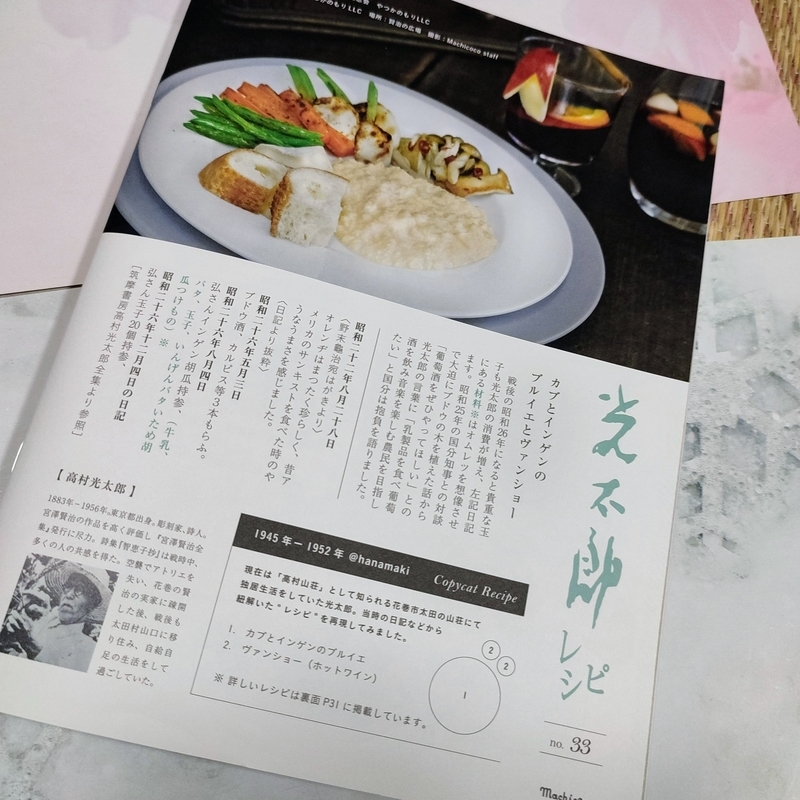 やつかのもりLLC
やつかのもりLLC 場所：賢治の広場 撮影：Machicoco staff
光太郎
レシピ
no. 33
カブとインゲンの
ブルイエとヴァンショー
戦後の昭和26年になると貴重な玉
子も光太郎の消費が増え、左記日記
にある材料※はオムレツを想像させ
ます。昭和25年の国分知事との対談
で大迫にブドウの木を植えた話から
「葡萄酒をぜひやってほしい」との
光太郎の言葉に「乳製品を食べ葡萄
酒を飲み音楽を楽しむ農民を目指し
たい」と国分は抱負を語りました。
昭和二十二年八月二十八日
〈野末亀治宛はがきより〉
オレンヂはまつたく珍らしく、昔ア
メリカのサンキストを食べた時のや
うなうまさを感じました。
〈日記より抜粋〉
昭和二十六年五月三日
ブドウ酒、カルピス等3本もらふ。
昭和二十六年八月四日
弘さんインゲン胡瓜持参、（牛乳、
バタ、玉子、いんげんバタいため胡
瓜つけもの）※
昭和二十六年十二月四日の日記
弘さん玉子20個持参、
［筑摩書房高村光太郎全集より参照］
【高村光太郎】
1883年−1956年。東京都出身。彫刻家、詩人。
宮澤賢治の作品を高く評価し『宮澤賢治全
集』発行に尽力。詩集『智恵子抄』は戦時中、
多くの人の共感を得た。空襲でアトリエを
失い、花巻の賢
治の実家に疎開
した後、戦後も
太田村山口に移
り住み、自給自
足の生活をして
過ごしていた。
1945 年 − 1952 年 @hanamaki Copycat Recipe
現在は「高村山荘」として知られる花巻市太田の山荘にて
独居生活をしていた光太郎。当時の日記などから
紐解いた“レシピ”を再現してみました。
1. カブとインゲンのブルイエ
2. ヴァンショー（ホットワイン）
※ 詳しいレシピは裏面 P31 に掲載しています。
2
2
1